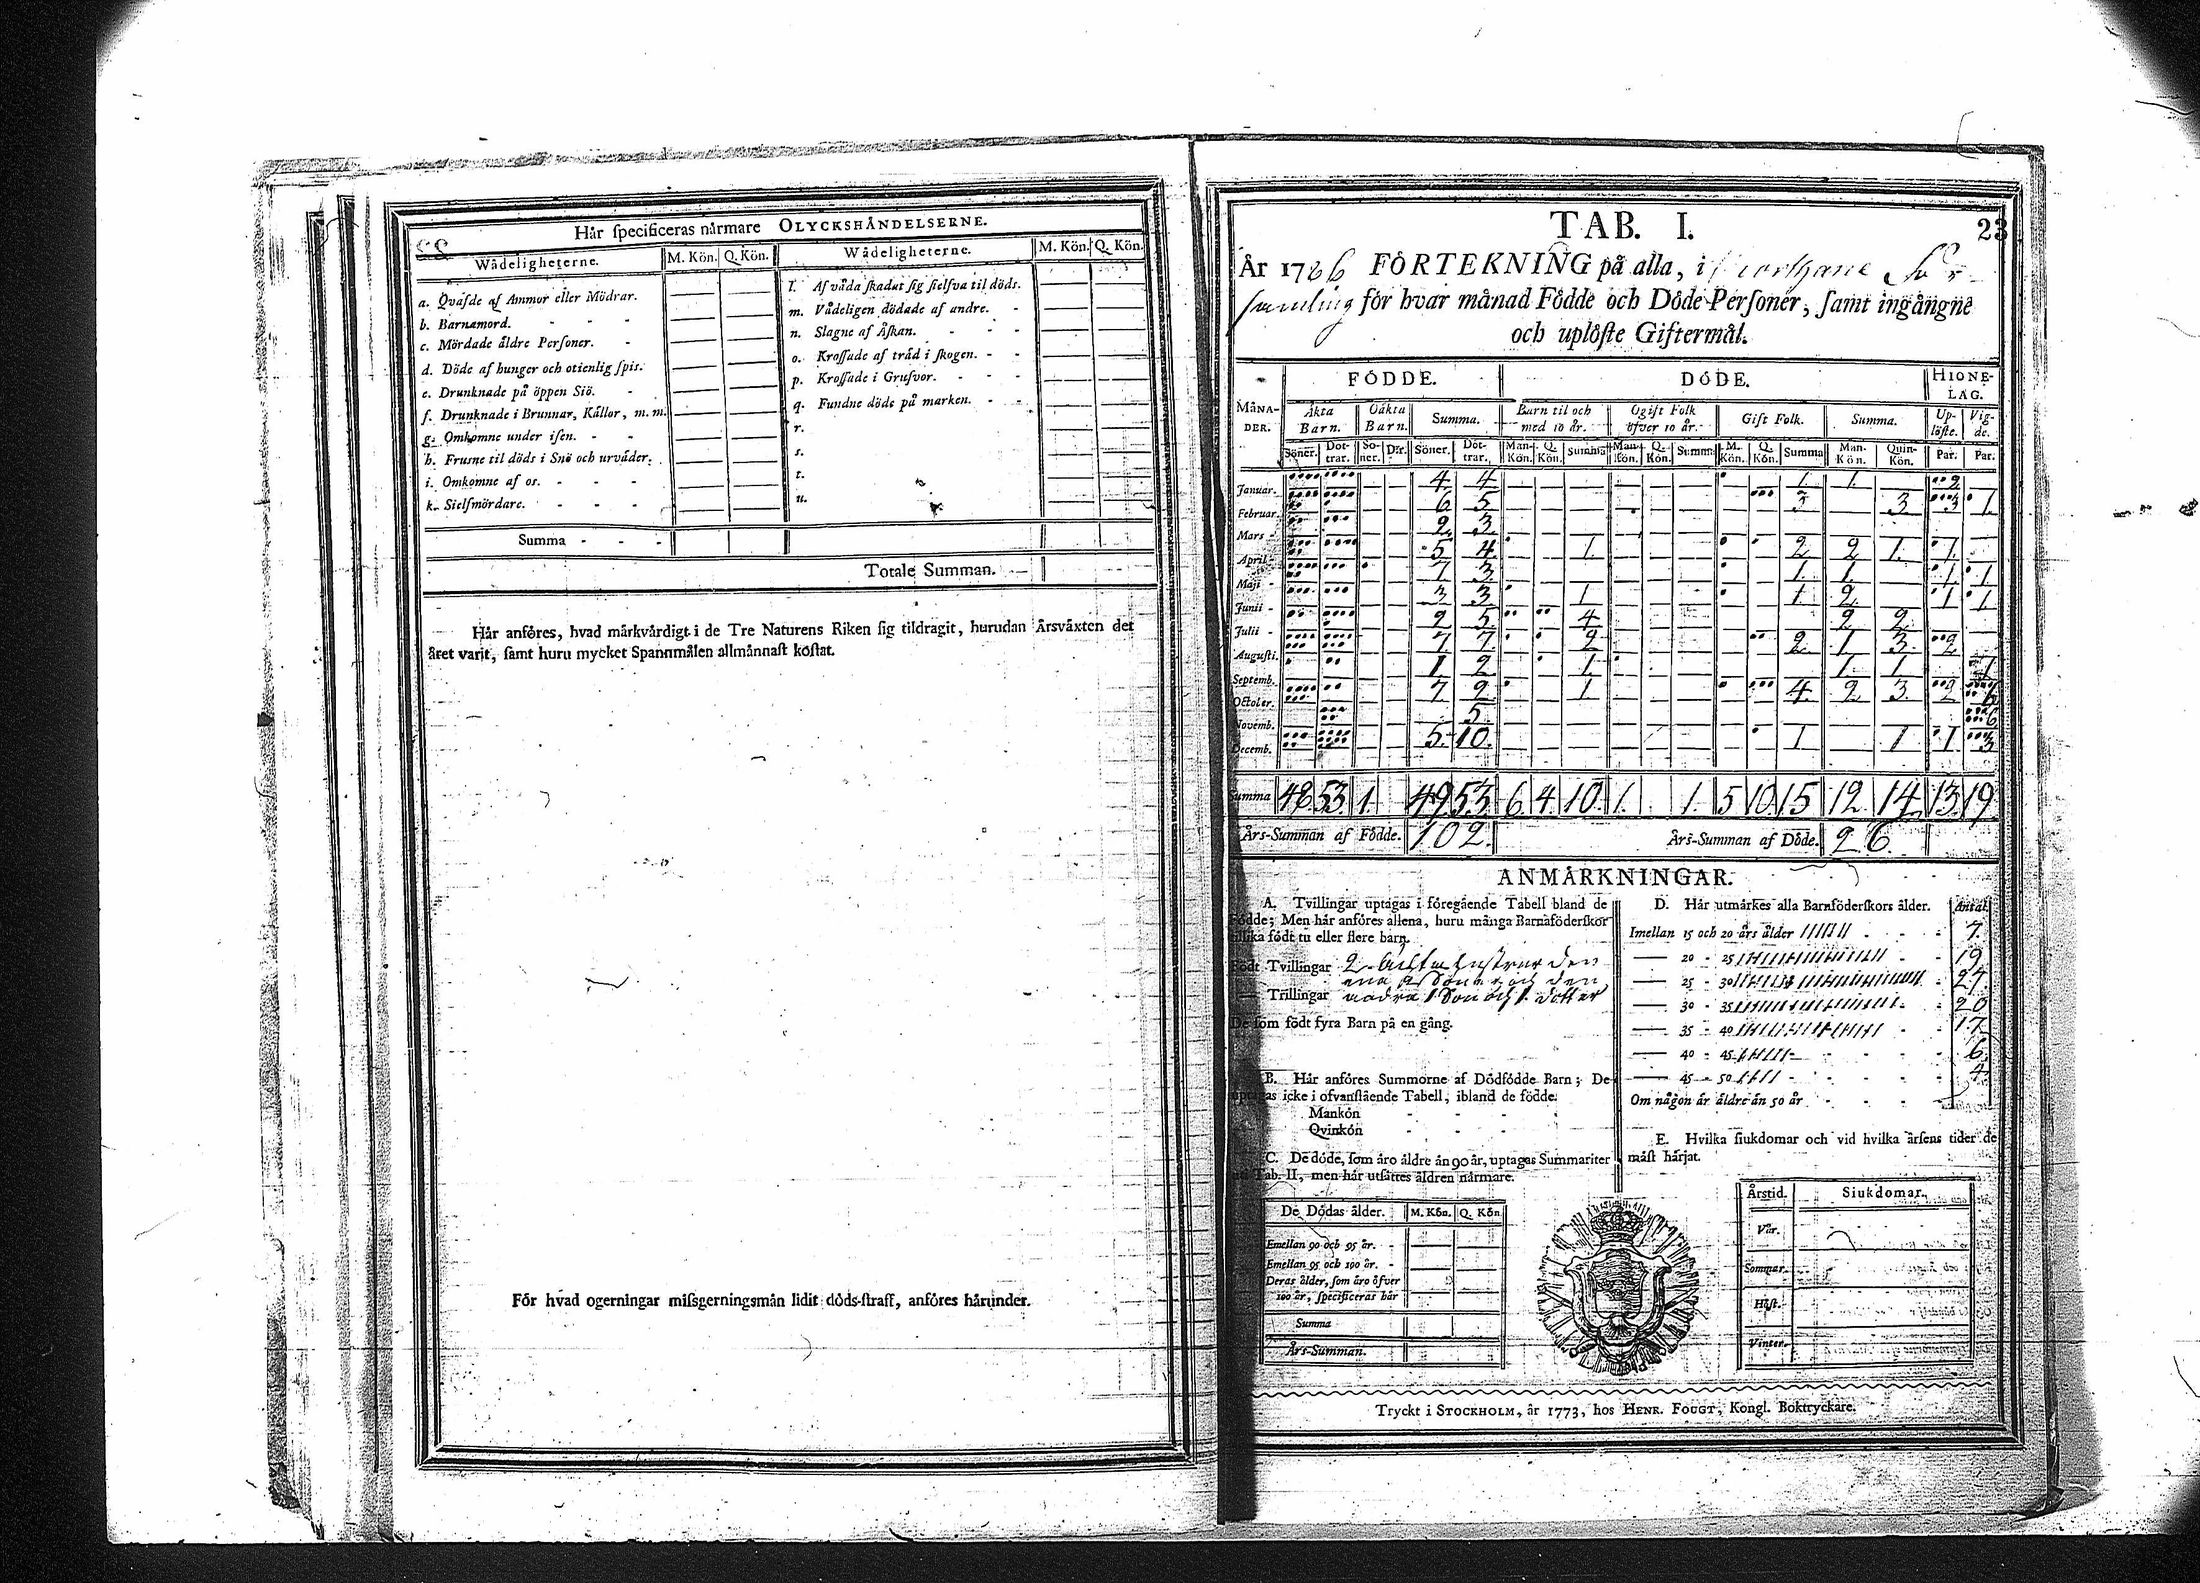 22
Hår specificeras nårmare OLYCKSHÅNDELSERNE.
Wådeligheterne. M. Kön. Q. Kön. Wådeligheterne. M. Kön. Q. Kön.
a. Qvåfde af Ammor eller Mödrar.
b. Barnamord. - - -
c. Mördade åldre Personer. -
d. Döde af hunger och otienlig spis.
e. Drunknade på öppen Siö. -
f. Drunknade i Brunnar, Kållor, m. m.
g. Omkomne under isen. - -
h. Frusne til döds i Snö och urvåder.
i. Omkomne af os. - - -
k. Sielfmördare. - - -
l. Af våda skadat sig sielfva til döds.
m. Vådeligen dödade af andre. -
n. Slagne af Åskan. - - -
o. Krossade af tråd i skogen. - -
p. Krossade i Grufvor. - - -
q. Fundne döde på marken. - -
r.
s.
t.
u.
Summa - - -
Totale Summan.
Hår anföres, hvad mårkvårdigt i de Tre Naturens Riken sig tildragit, hurudan Årsvåxten det
året varit, samt huru mycket Spannmålen allmånnast kostat.
För hvad ogerningar missgerningsmån lidit döds-straff, anföres hårunder.
TAB. I. 23
År 1786 FÖRTEKNING på alla, i
för hvar månad Födde och Döde Personer, samt ingångne
och uplöste Giftermål.
FÖDDE. DÖDE. HIONE-
LAG.
MÅNA-
DER.
Åkta
Barn. Oåkta
Barn. Summa. Barn til och
med 10 år. Ogift Folk
öfver 10 år. Gift Folk. Summa. Up-
löste. Vig-
de.
Söner. Döt-
trar. Sö-
ner. D:r. Söner. Döt-
trar. Man-
Kön. Q.
Kön. Summa Man-
kön. Q.
Kön. Summ. M.
Kön. Q.
Kön. Summa Man-
Kön. Quin-
Kön. Par. Par.
Januar. 4 4 1 1 2
Februar. 6 5 3 3 3 1
Mars - 2 3
April - 5 4 1 2 2 1 1
Maji - 7 3 1 1 1 1
Junii - 3 3 1 1 2 1 1
Julii - 2 5 4 2 2
Augusti. 7 7 2 2 1 3 2
Septemb. 1 2 1 1 1 1
October. 7 2 1 4 2 3 2 6
Novemb. 5 6
Decemb. 5 10 1 1 1 3
Summa 48 53 1 49 53 6 4 10 1 1 5 10 15 12 14 13 19
Års-Summan af Födde. 102. Års-Summan af Döde. 26
ANMÅRKNINGAR.
A. Tvillingar uptagas i föregående Tabell bland de
Födde; Men hår anföres allena, huru många Barnaföderskor
tillika födt tu eller flere barn.
Födt Tvillingar 2 Gifta hustrur den
ena 2 Söner och den
— Trillingar andra 1 Son och 1 dotter
De som födt fyra Barn på en gång.
B. Hår anföres Summorne af Dödfödde Barn; De
uptagas icke i ofvanstående Tabell, ibland de födde.
Mankön - - - -
Qvinkön - - - -
C. De döde, som åro åldre ån 90 år, uptagas Summariter
ud Tab. II, men hår utsåttes åldren nårmare.
De Dödas ålder. M. Kön. Q. Kön.
Emellan 90 och 95 år. -
Emellan 95 och 100 år. -
Deras ålder, som åro öfver
100 år, specificeras hår
Summa
Års-Summan.
D. Hår utmårkes alla Barnföderskors ålder. Antal
Imellan 15 och 20 års ålder - - - 7
— 20 - 25 - 19
— 25 - 30 - 27
— 30 - 35 - 20
— 35 - 40 - 17
— 40 - 45 - 6
— 45 - 50 - 4
Om någon år åldre ån 50 år - - -
E. Hvilka siukdomar och vid hvilka årsens tider de
måst hårjat.
Årstid. Siukdomar.
Vår.
Sommar.
Höst.
Vinter.
Tryckt i STOCKHOLM, år 1773, hos HENR. FOUGT, Kongl. Boktryckare.